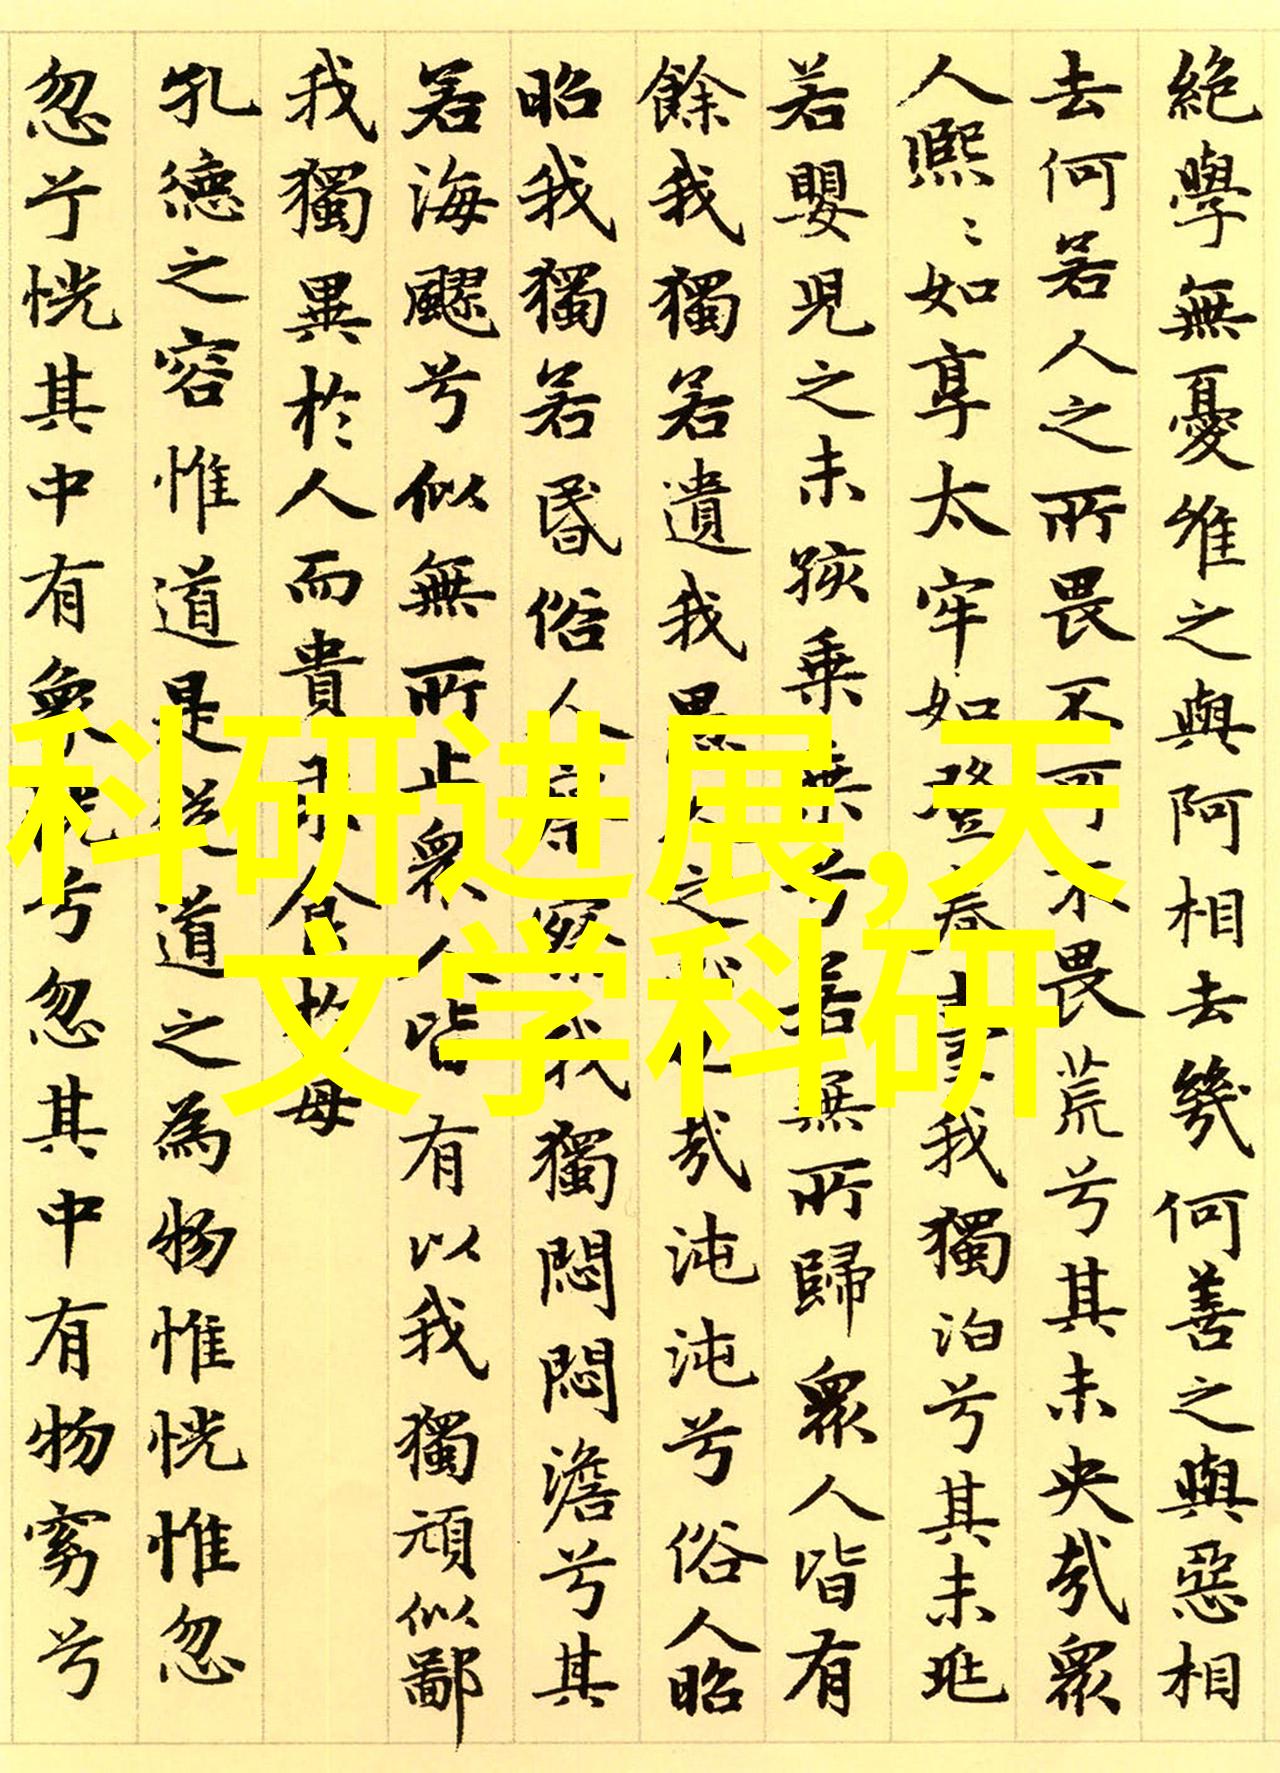 絶學無憂唯之與阿相去幾何善之與惡相
去何若人之所畏不可不畏荒兮其未央哉眾
人熙〻如享太牢如登春臺我獨泊兮其未兆
若嬰兒之未孩乘乘兮若無所歸眾人皆有
餘我獨若遺我愚人之心也哉沌沌兮俗人昭
昭我獨若昏俗人察察我獨悶悶澹兮其
若海飂兮似無所止眾人皆有以我獨頑似鄙
我獨異於人而貴求食於母
孔德之容惟道是從道之為物惟恍惟忽
忽兮恍其中有象恍兮忽其中有物窈兮
科研进展,天
文学科研